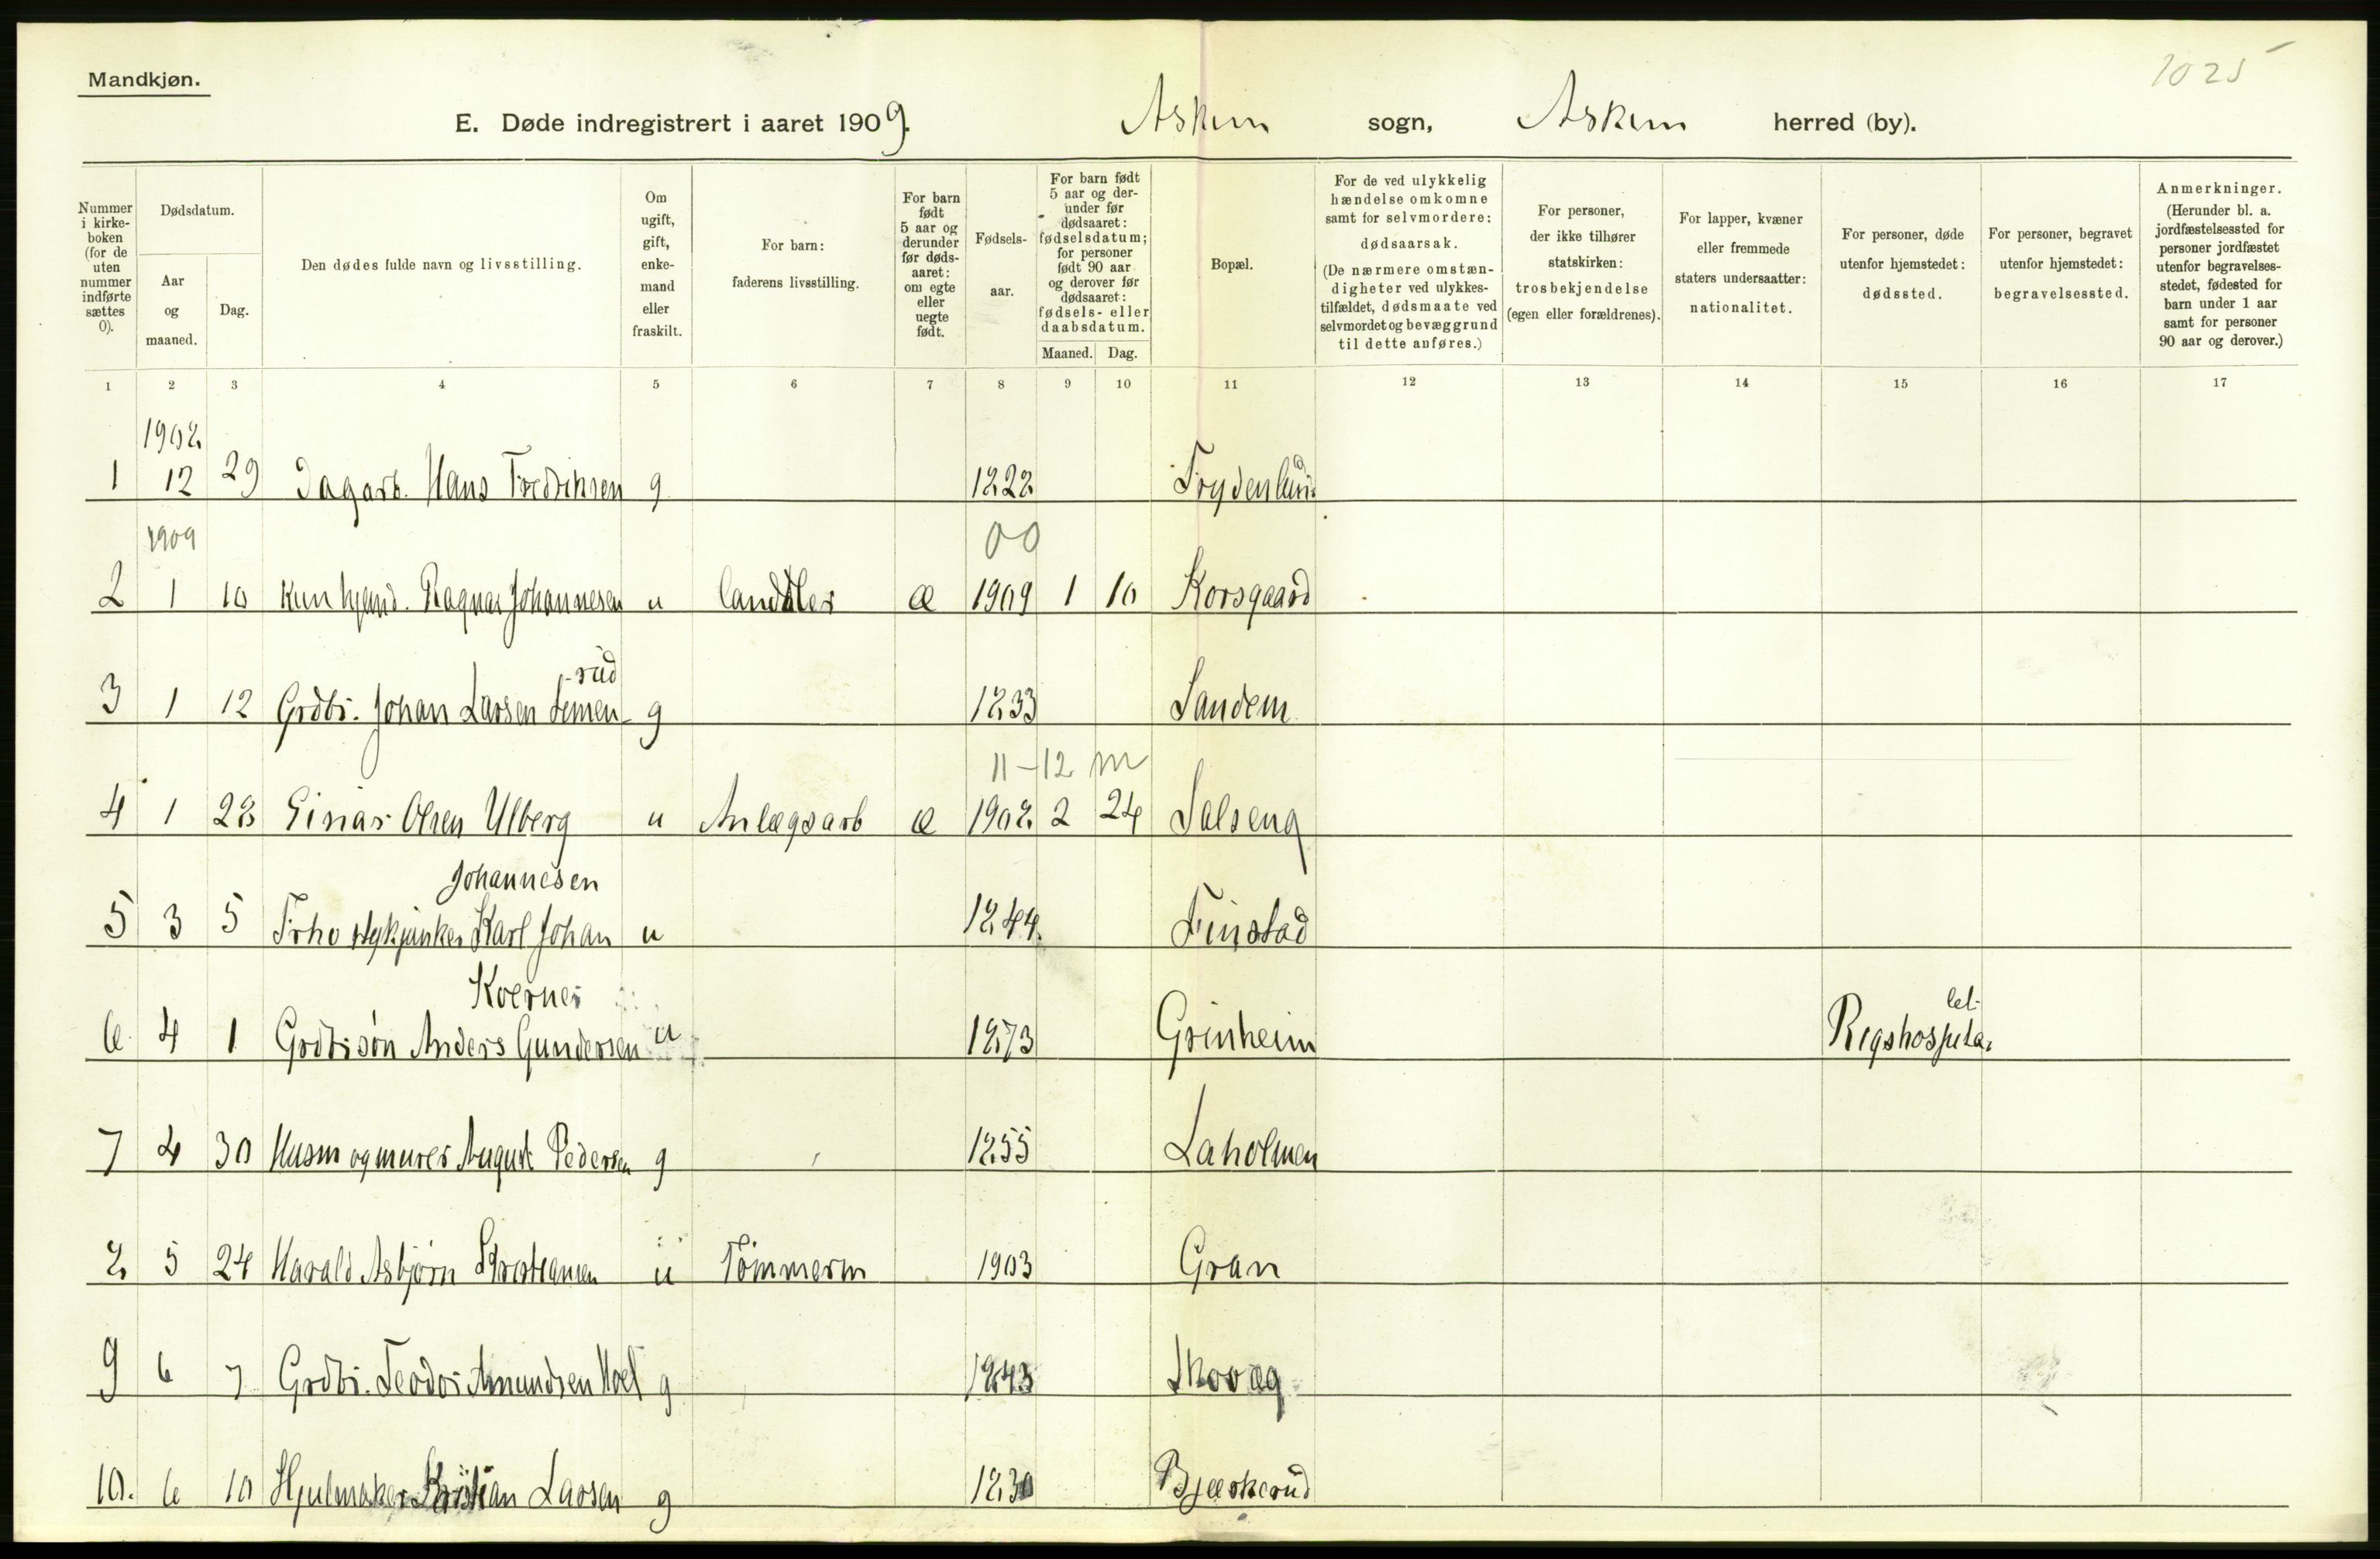 Mandkjøn.
1025
E. Døde indregistrert i aaret 1909. Askim sogn, Askim herred (by).
Nummer i kirke- boken (for de uten nummer indførte sættes 0).
Dødsdatum.
Aar og maaned.
Dag.
Den dødes fulde navn og livsstilling.
Om ugift, gift, enke- mand eller fraskilt.
For barn: faderens livsstilling.
For barn født 5 aar og derunder før døds- aaret: om egte eller uegte født.
Fødsels- aar.
For barn født 5 aar og der- under før dødsaaret: fødselsdatum; for personer født 90 aar og derover før dødsaaret: fødsels- eller daabsdatum.
Maaned. Dag.
Bopæl.
For de ved ulykkelig hændelse omkomne samt for selvmordere: dødsaarsak. (De nærmere omstæn- digheter ved ulykkes- tilfældet, dødsmaate ved selvmordet og bevæggrund til dette anføres.)
For personer, der ikke tilhører statskirken: trosbekjendelse (egen eller forældrenes).
For lapper, kvæner eller fremmede staters undersaatter: nationalitet.
For personer, døde utenfor hjemstedet: dødssted.
For personer, begravet utenfor hjemstedet: begravelsessted.
Anmerkninger. (Herunder bl. a. jordfæstelsessted for personer jordfæstet utenfor begravelses- stedet, fødested for barn under 1 aar samt for personer 90 aar og derover.)
1 2 3 4 5 6 7 8 9 10 11 12 13 14 15 16 17
1908
1 12 29 Dagarb. Hans Fredriksen g 1828 Frydenlund
1909 00
2 1 10 Kun hjemd. Ragnar Johannesen u Landhdler æ 1909 1 10 Korsgaard
-rud
3 1 12 Grdbr. Johan Larsen Lemen- g 1833 Sandem
11-12 m
4 1 28 Einar Olsen Ulberg u Anlægsarb æ 1908 2 24 Salseng
Johannesen
5 3 5 Karl Johan u 1844 Finstad
Kvernes let
6 4 1 Grdbrsøn Anders Gundersen u 1873 Grinheim Rigshospita-
7 4 30 Husm og murer August Pedersen g 1855 Laholmen
8 5 24 Harald Asbjørn Kristiansen u Tømmerm 1903 Gran
9 6 7 Grdbr. Teodor Amundsen Hoel g 1843 Skovæg
10. 6 10 Hjulmaker Kristian Larsen g 1830 Bjerkerud